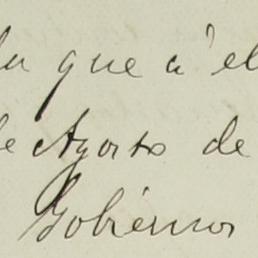 la que á el
de Agosto de
Gobiernos